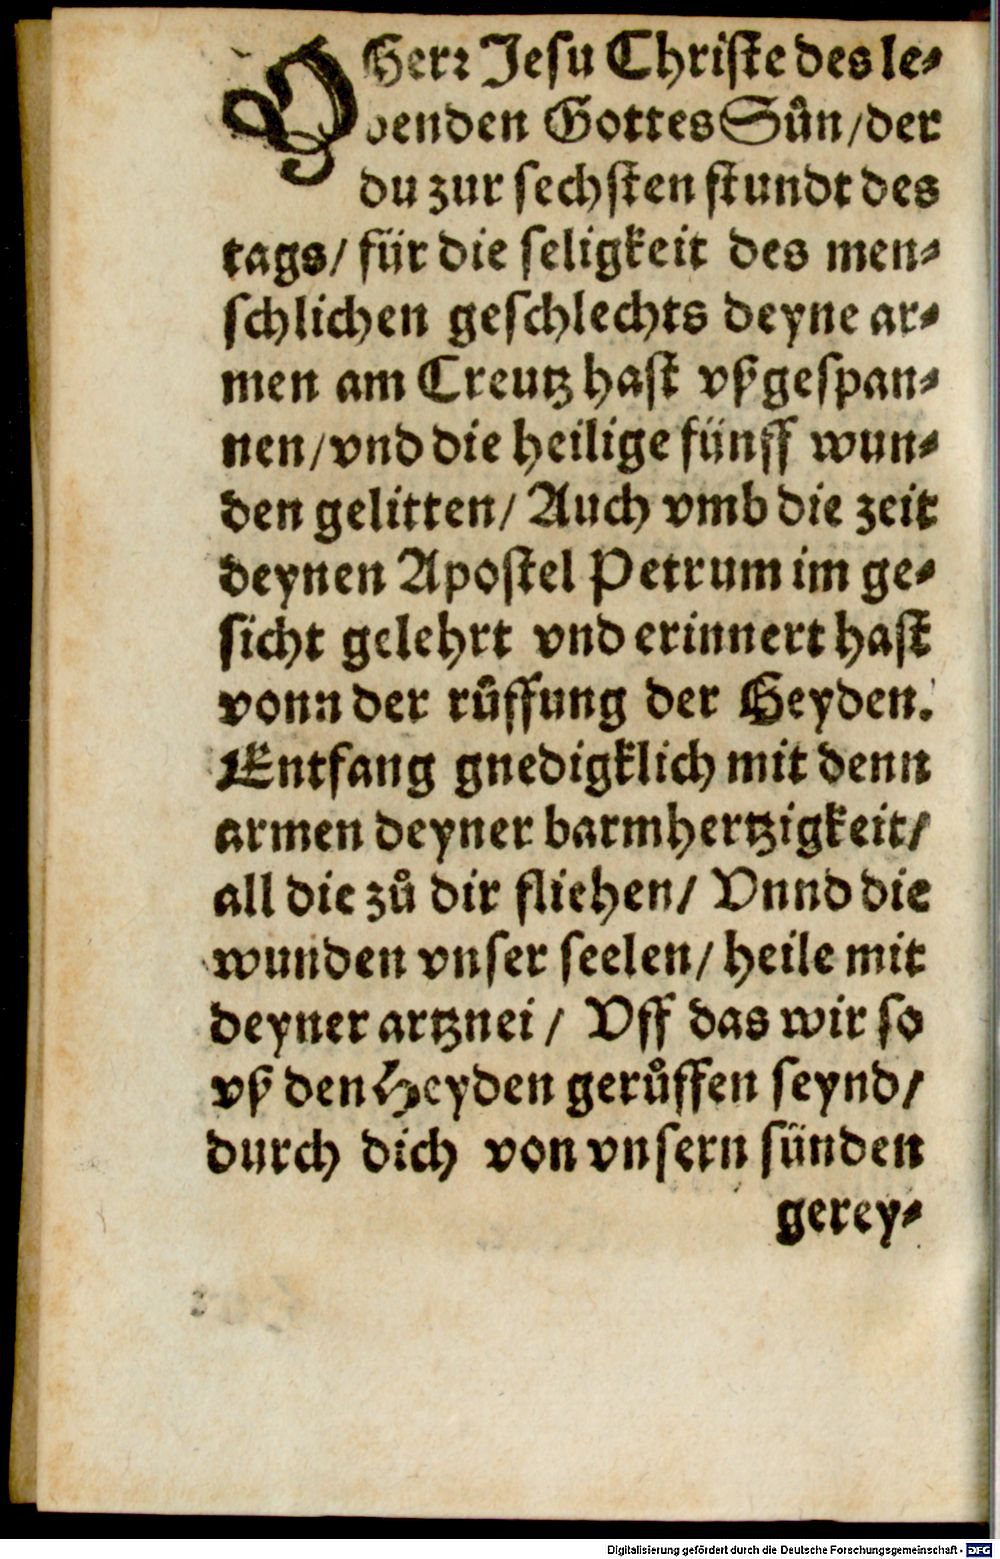 O Herꝛ Jesu Christe des le⸗
benden Gottes Sůn/der
du zur sechsten stundt des
tags/ für die seligkeit des men⸗
schlichen geschlechts deyne ar⸗
men am Creutz hast vßgespan⸗
nen/vnd die heilige fünff wun⸗
den gelitten/ Auch vmb die zeit
deynen Apostel Petrum im ge⸗
sicht gelehrt vnd erinnert hast
vonn der růffung der Heyden.
Entfang gnedigklich mit denn
armen deyner barmhertzigkeit/
all die zů dir fliehen/ Vnnd die
wunden vnser seelen/ heile mit
deyner artznei/ Vff das wir so
vß den Heyden gerůffen seynd/
durch dich von vnsern sünden
gerey⸗
Digitalisierung gefördert durch die Deutsche Forschungsgemeinschaft - DFG